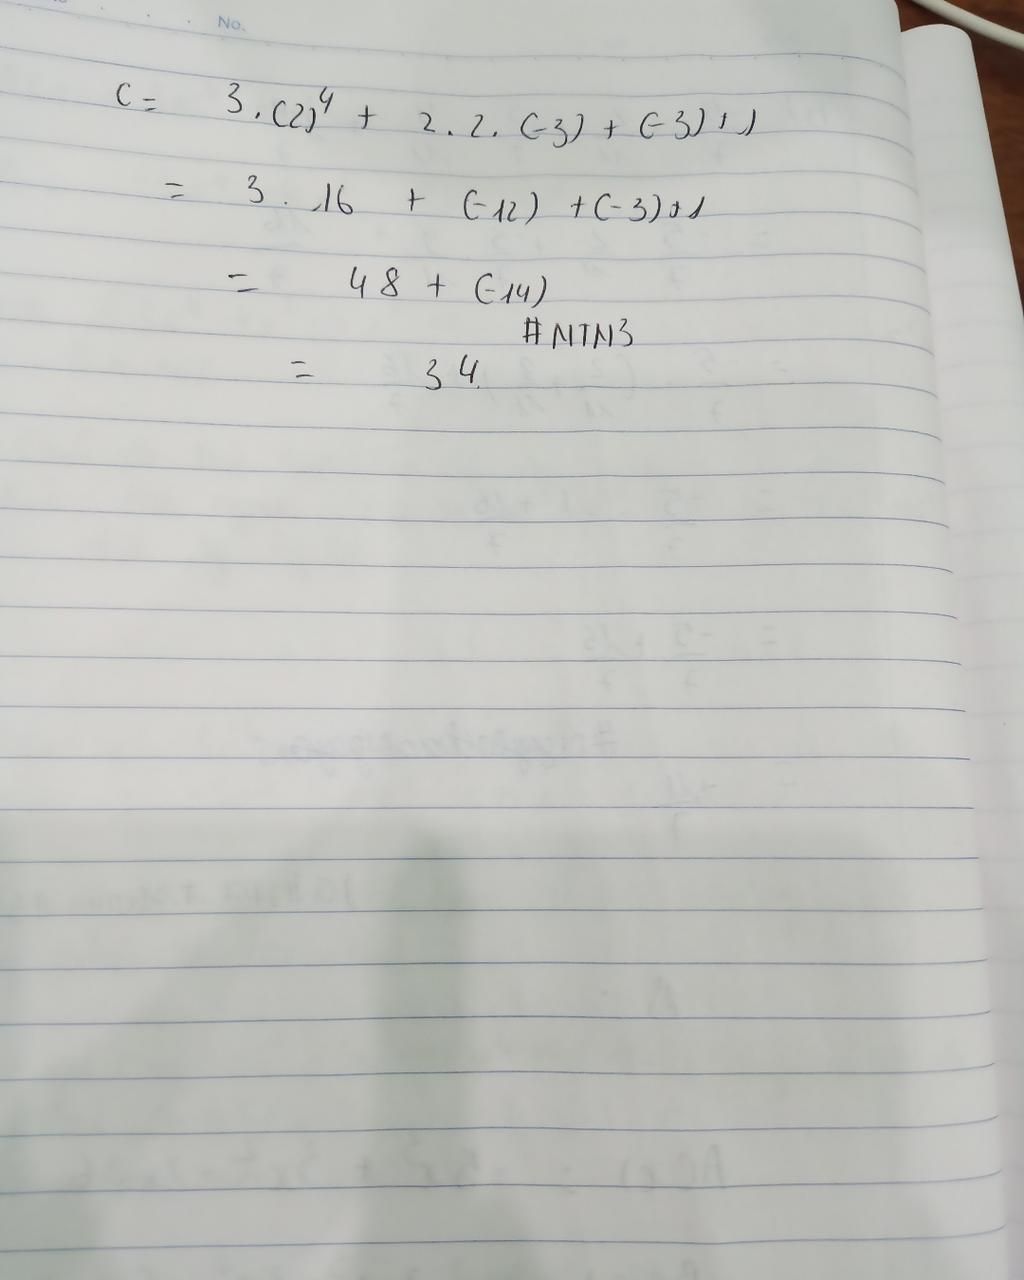 No.
C = 3.(2)⁴ + 2.2.(-3) + (-3)+1
= 3.16 + (-12) + (-3)+1
= 48 + (-14)
#NTN3
= 34